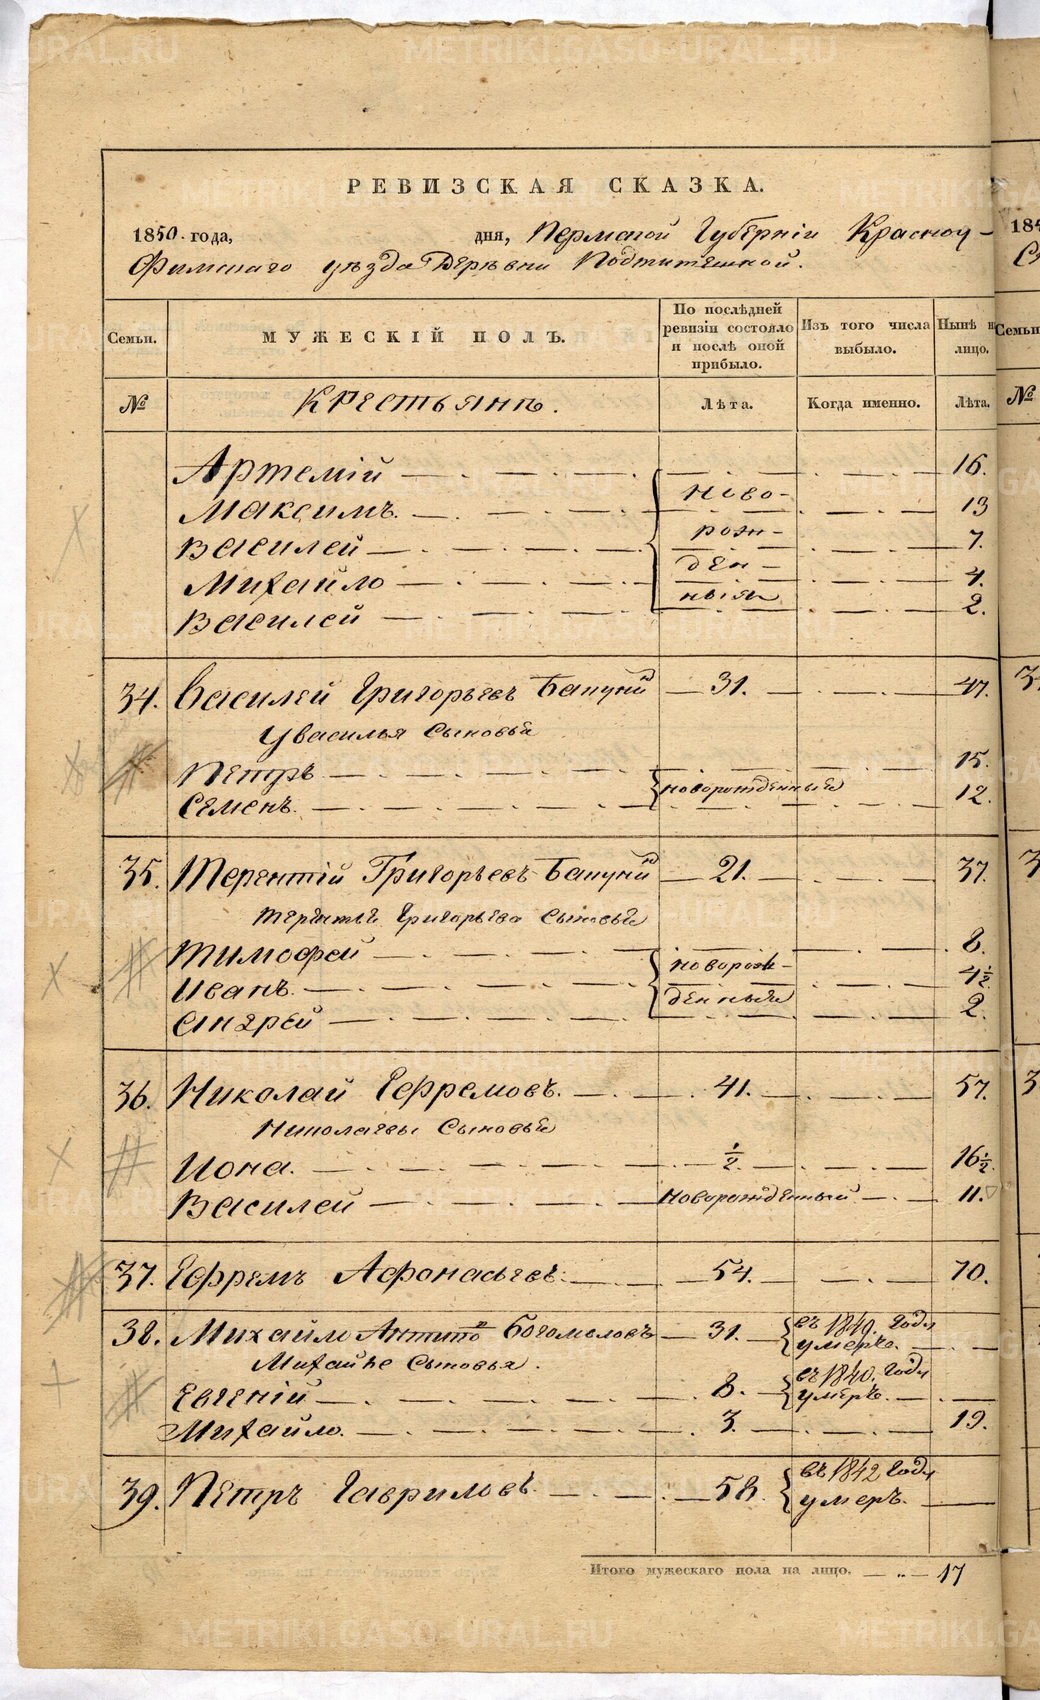 РЕВИЗСКАЯ СКАЗКА.
1850. года, дня, Пермской Губерніи Красноу-
фимскаго уѣзда Деревни Подтитешной.
Семьи. МУЖЕСКІЙ ПОЛЪ. По послѣдней ревизіи состояло и послѣ оной прибыло. Изъ того числа выбыло. Нынѣ на лицо.
№ Крестьянъ. Лѣта. Когда именно. Лѣта.
Артемій 16.
Максимъ. ново- 13
Василей рож- 7.
Михайло ден- 4.
Василей ныя 2.
34. Василей Григорьевъ Бапунинъ 31. 47.
У василья сыновья
Петръ 15.
Семенъ новорожденныя 12.
35. Терентій Григорьевъ Бапунинъ 21. 37.
терентья Григорьева сыновья
Тимофей 8.
Иванъ новорож- 4½
Андрей денныя 2.
36. Николай Ефремовъ. 41. 57.
Николаевы Сыновья
Иона. ½ 16½
Василей Новорожденный 11.
37. Ефремъ Афонасьевъ. 54. 70.
38. Михайло Антипо Богомоловъ 31. въ 1849. году
умеръ.
Михайлы Сыновья.
Евгеній 8. въ 1840. году умеръ.
Михайло. 3. 19.
39. Петръ Гавриловъ 58. въ 1842 году
умеръ.
Итого мужескаго пола на лицо. 17
METRIKI.GASO-URAL.RU